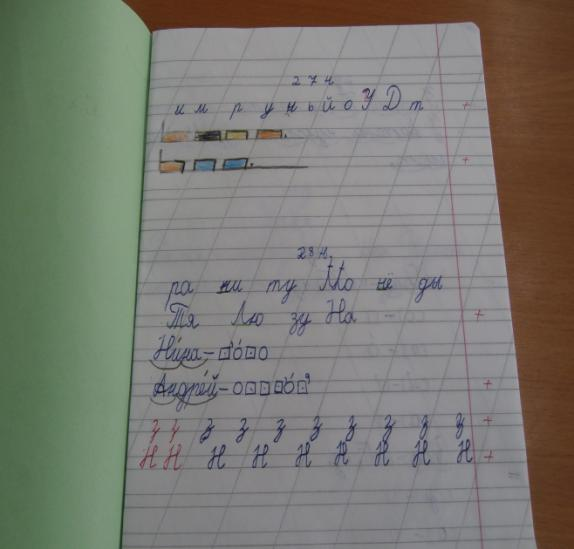 27 н
и м р у н ы й о У Д т +
+
28 н.
ра ни ту Мо нё ды
Тя Лю зу На +
Нина –
Андрей – +
З З З З З З З З З З +
Н Н Н Н Н Н Н Н Н +